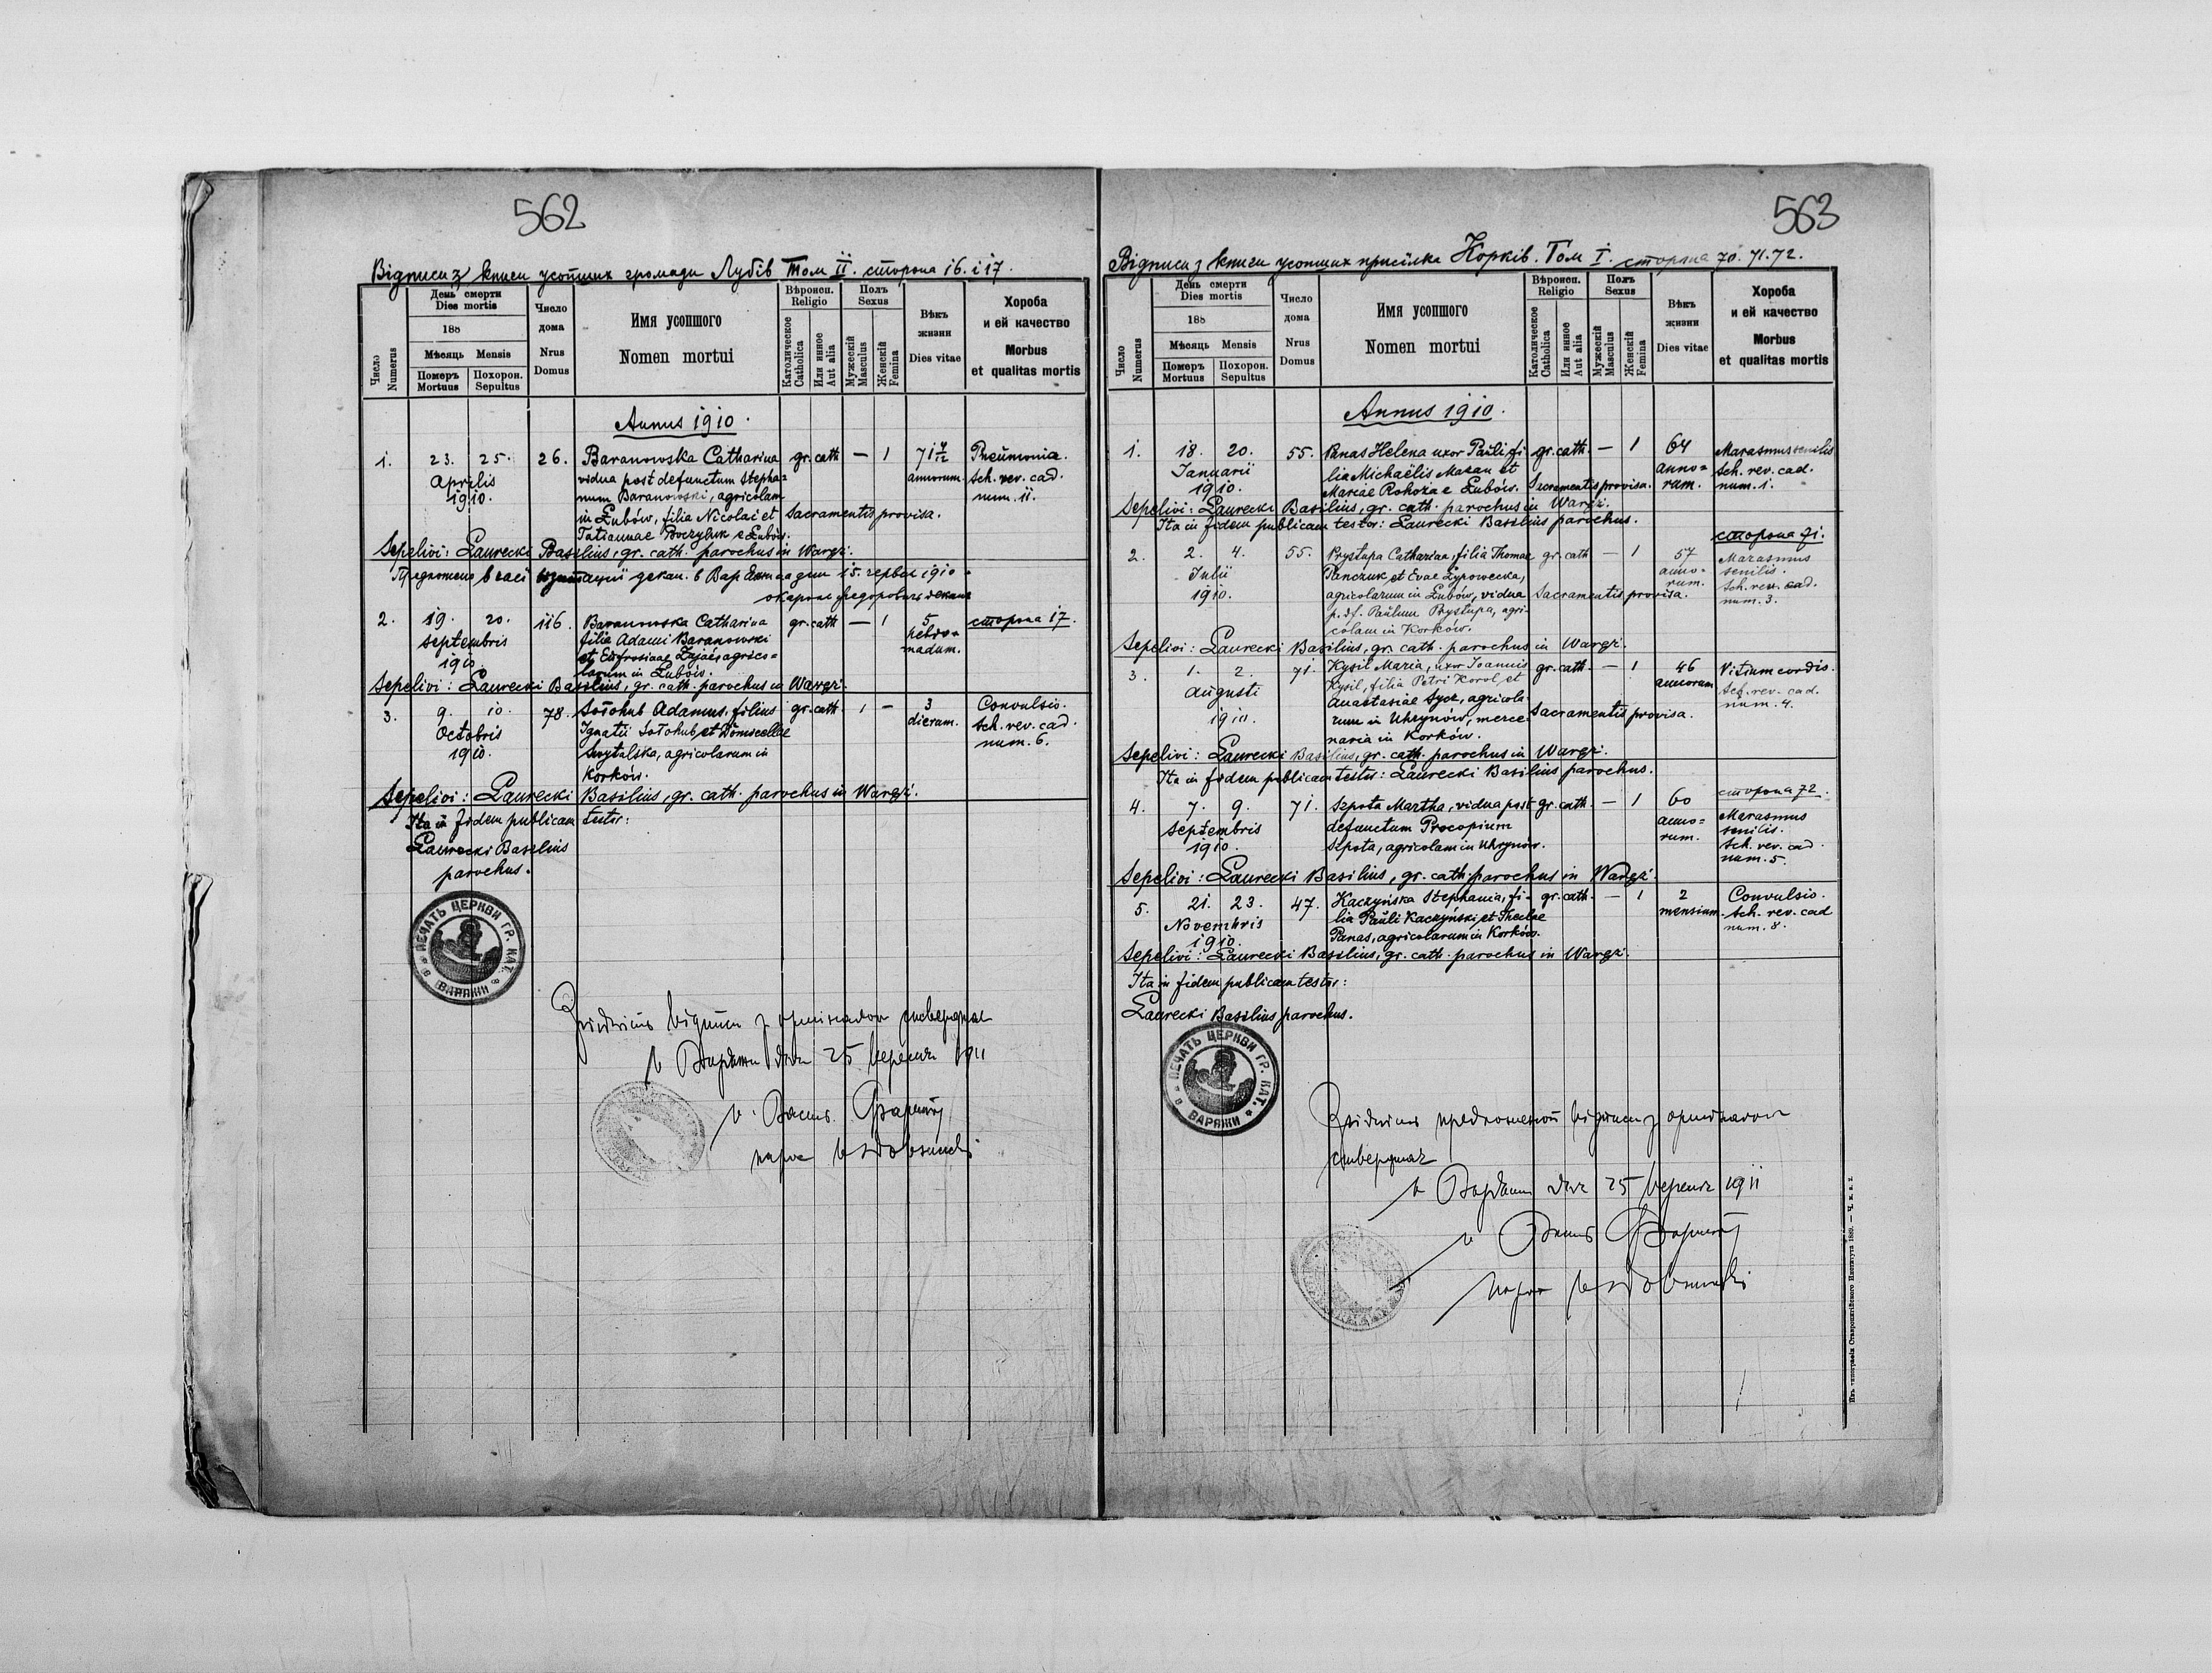 562
Відписи з книги усопших громади Лубів Том II. сторона 16. і 17.
Число Numerus
День смерти
Dies mortis
188
Мѣсяць Mensis
Померъ Mortuus
Похорон. Sepultus
Число дома
Nrus Domus
Имя усопшого
Nomen mortui
Вѣроисп.
Religio
Католическое Catholica
Или инное Aut alia
Полъ
Sexus
Мужескій Masculus
Женскій Femina
Вѣкъ жизни
Dies vitae
Хороба
и ей качество
Morbus
et qualitas mortis
Annus 1910.
1. 23. 25. 26. Baranowska Catharina gr. cath. — 1 71 4/12 Pneŭmonia.
Aprilis vidua post defunctum Stepha= annorum. Sch. rev. cad.
1910. num Baranowski, agricolam num. 11.
in Łubów, filia Nicolai et Sacramentis provisa.
Tatiannae Boczyluk e Łubów.
Sepelivi: Laurecki Basilius, gr. cath. parochus in Waręż.
Предложено в часі візитації декан. в Варяжи дня 15. червня 1910
декан
2. 19. 20. 116. Baranowska Catharina gr. cath — 1 5 сторона 17.
Septembris filia Adami Baranowski hebdo=
1910. et Eŭfrosinae Zając, agrico= madum.
larum in Łubów.
Sepelivi: Laurecki Basilius, gr. cath. parochus in Waręż.
3. 9. 10. 78. Sołohub Adamus, filius gr. cath. 1 — 3 Convulsio.
Octobris Ignatii Sołohub et Domicellae dierum. Sch. rev. cad.
1910. Swytalska, agricolarum in num. 6.
Korków.
Sepelivi: Laurecki Basilius, gr. cath. parochus in Waręż.
Ita in fidem publicam testor:
Laurecki Basilius
parochus.
ПЕЧАТЬ ЦЕРКВИ ГР. КАТ. в ВАРЯЖИ
Згідність відписи з оригіналом стверджає
в Варяжи дня 25 вересня 1911
563
Відписи з книги усопших присілка Корків. Том I. сторона 70. 71. 72.
Число Numerus
День смерти
Dies mortis
188
Мѣсяць Mensis
Померъ Mortuus
Похорон. Sepultus
Число дома
Nrus Domus
Имя усопшого
Nomen mortui
Вѣроисп.
Religio
Католическое Catholica
Или инное Aut alia
Полъ
Sexus
Мужескій Masculus
Женскій Femina
Вѣкъ жизни
Dies vitae
Хороба
и ей качество
Morbus
et qualitas mortis
Annus 1910.
1. 18. 20. 55. Panas Helena uxor Paŭli, fi= gr. cath. — 1 64 Marasmus senilis
Ianuarii lia Michaëlis Mazan et anno= Sch. rev. cad.
1910. Mariae Rohoza e Łubów. Sacramentis provisa. rum. num. 1.
Sepelivi: Laurecki Basilius, gr. cath. parochus in Waręż.
Ita in fidem publicam testor: Laurecki Basilius parochus.
сторона 71.
2. 2. 4. 55. Prystupa Catharina, filia Thomae gr. cath — 1 57 Marasmus
Julii Panczuk et Evae Lypowecka, anno= senilis.
1910. agricolarum in Łubów, vidua Sacramentis provisa. rum. Sch. rev. cad.
p. df. Paŭlum Prystupa, agri= num. 3.
colam in Korków.
Sepelivi: Laurecki Basilius, gr. cath. parochus in Waręż.
3. 1. 2. 71. Kysil Maria, uxor Ioannis gr. cath. — 1 46 Vitium cordis.
Augusti Kysil, filia Petri Korol, et annorum Sch. rev. cad.
1910. Anastasiae Sycz, agricola= num. 4.
rum in Uhrynów, merce= Sacramentis provisa.
naria in Korków.
Sepelivi: Laurecki Basilius, gr. cath. parochus in Waręż.
Ita in fidem publicam testor: Laurecki Basilius parochus.
сторона 72.
4. 7. 9. 71. Szpota Martha, vidua post gr. cath. — 1 60 Marasmus
Septembris defunctum Procopium anno= senilis.
1910. Szpota, agricolam in Uhrynów. rum. Sch. rev. cad.
num. 5.
Sepelivi: Laurecki Basilius, gr. cath. parochus in Waręż.
5. 21. 23. 47. Kaczyńska Stephania, fi= gr. cath. — 1 2 Convulsio.
Novembris lia Paŭli Kaczyński et Theclae mensium. Sch. rev. cad
1910. Panas, agricolarum in Korków. num. 8.
Sepelivi: Laurecki Basilius, gr. cath. parochus in Waręż.
Ita in fidem publicam testor:
Laurecki Basilius parochus.
ПЕЧАТЬ ЦЕРКВИ ГР. КАТ. в ВАРЯЖИ
Згідність предложеної відписи з оригіналом
стверджає
в Варяжи дня 25 вересня 1911
Изъ типографіи Ставропигійского Института 1889.